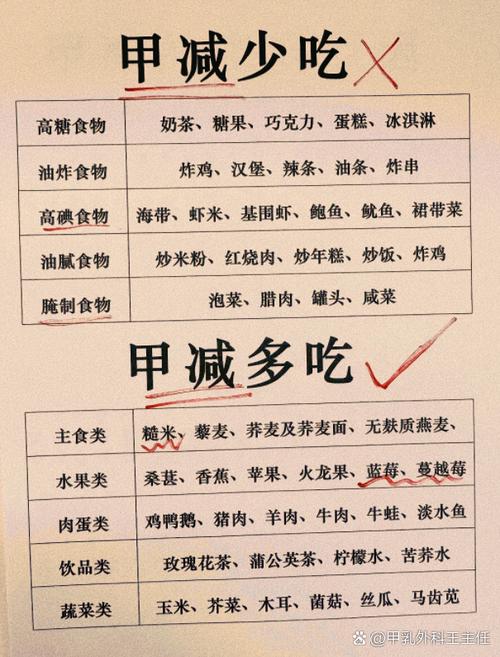 甲减少吃
高糖食物 奶茶、糖果、巧克力、蛋糕、冰淇淋
油炸食物 炸鸡、汉堡、辣条、油条、炸串
高碘食物 海带、虾米、基围虾、鲍鱼、鱿鱼、裙带菜
油腻食物 炒米粉、红烧肉、炒年糕、炒饭、炸鸡
腌制食物 泡菜、腊肉、罐头、咸菜
甲减多吃
主食类 糙米、藜麦、荞麦及荞麦面、无麸质燕麦、
水果类 桑葚、香蕉、苹果、火龙果、蓝莓、蔓越莓
肉蛋类 鸡鸭鹅、猪肉、羊肉、牛肉、牛蛙、淡水鱼
饮品类 玫瑰花茶、蒲公英茶、柠檬水、苦荞水
蔬菜类 玉米、芥菜、木耳、菌菇、丝瓜、马齿苋
甲乳外科王主任